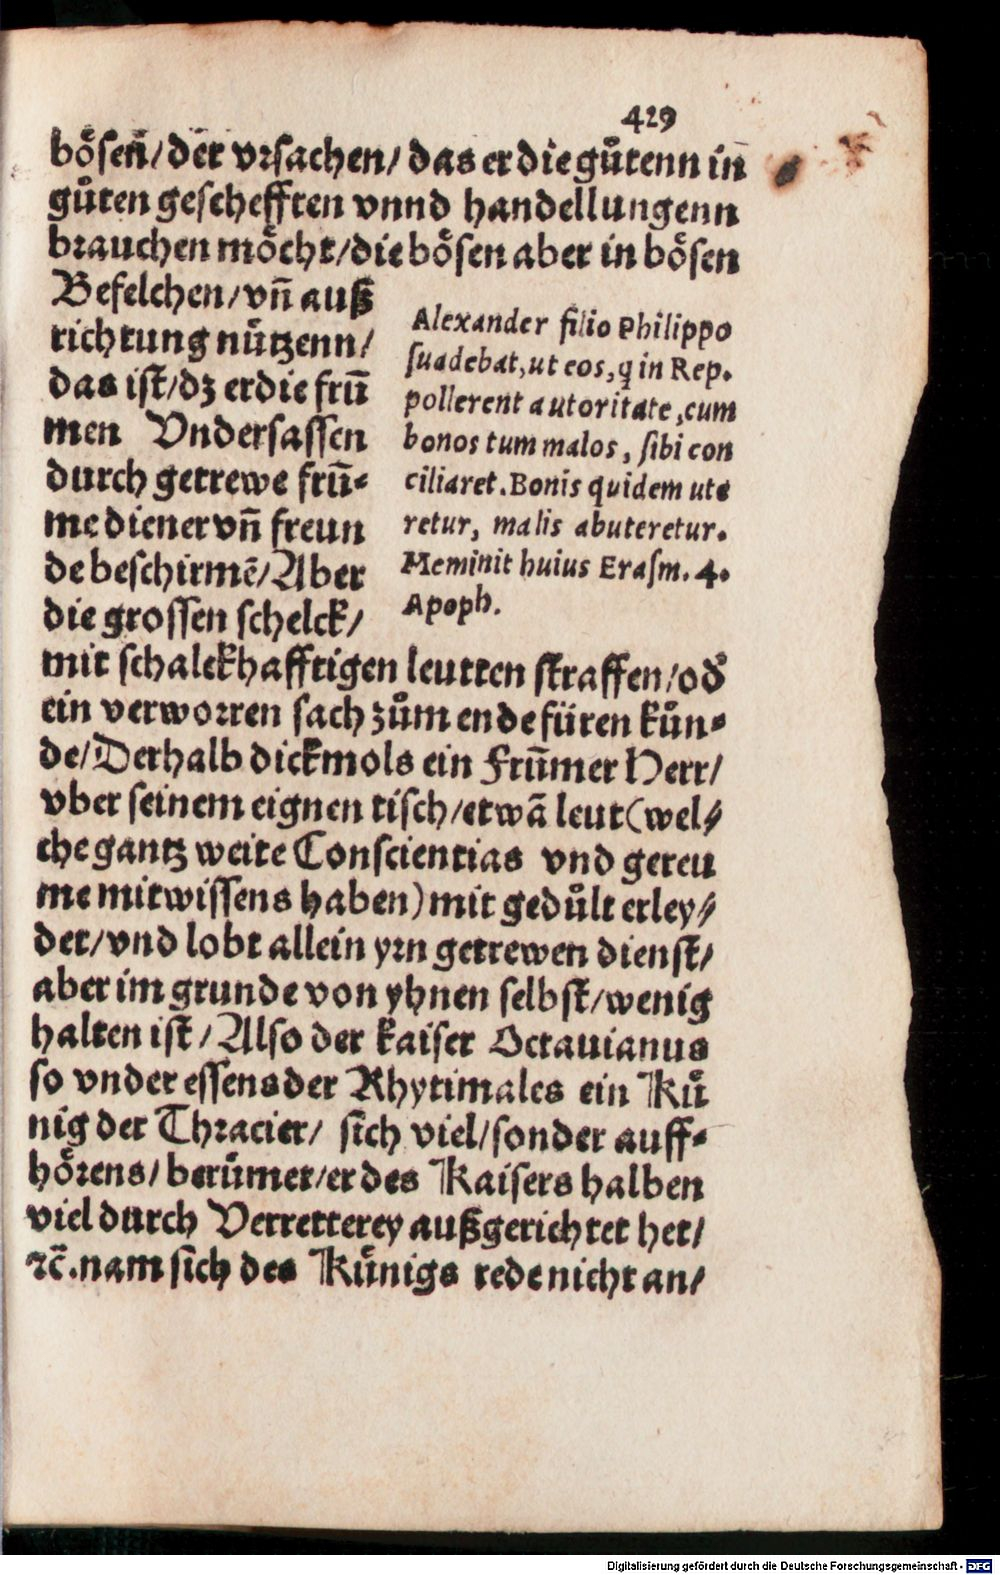 429
böſen̄/der vrſachen/ das er die gůtenn in̄
gůten geſchefften vnnd handellungenn
brauchen möcht/die böſen aber in böſen
Befelchen/vn̄ auß
richtung nützenn/
das iſt/dz er die frū
men Vnderſaſſen
durch getrewe frū⸗
me diener vn̄ freun
de beſchirmē/Aber
die groſſen ſchelck/
Alexander filio Philippo
ſuadebat,ut eos,q in Rep.
pollerent autoritate,cum
bonos tum malos, ſibi con
ciliaret.Bonis quidem ute
retur, malis abuteretur.
Meminit huius Eraſm. 4.
Apoph.
mit ſchalckhafftigen leutten ſtraffen/od̕
ein verworren ſach zům ende füren kün⸗
de/Derhalb dickmols ein Frūmer Herr/
vber ſeinem eignen tiſch/etwā leut(wel⸗
che gantz weite Conſcientias vnd gereu
me mitwiſſens haben)mit gedůlt erley⸗
det/vnd lobt allein yrn getrewen dienſt/
aber im grunde von yhnen ſelbſt/wenig
halten iſt/Alſo der kaiſer Octauianus
ſo vnder eſſens der Rhytimales ein Kü
nig der Thracier/ ſich viel/ſonder auff⸗
hörens/berümet/er des Kaiſers halben
viel durch Verretterey außgerichtet het/
ꝛc̄.nam ſich des Künigs rede nicht an/
Digitalisierung gefördert durch die Deutsche Forschungsgemeinschaft - DFG